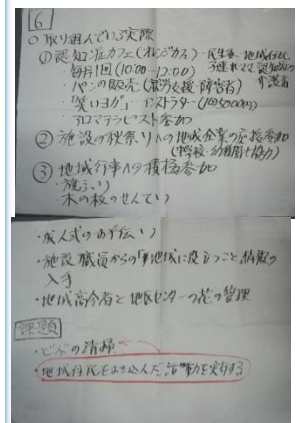 6
○取り組んでいる実際
① 認知症カフェ(オレンジカフェ)-民生委・地域住民
子連れママ 認知症の
介護者
・毎月1回(10:00~12:00)
・パンの販売(就労支援・障害者)
・「笑いヨガ」インストラクター(1回5000円)
・アロマテラピスト参加
② 施設の秋祭りへの地域企業の応援参加
(中学校・幼稚園も協力)
③ 地域行事への積極参加
・旗ふり
・木の枝のせんてい
・成人式のお手伝い
・施設職員からの「地域に役立つこと」情報の
入手
・地域高令者と地民センターの花の管理
課題
・どぶの清掃
・地域住民をまき込んだ活動を実行する